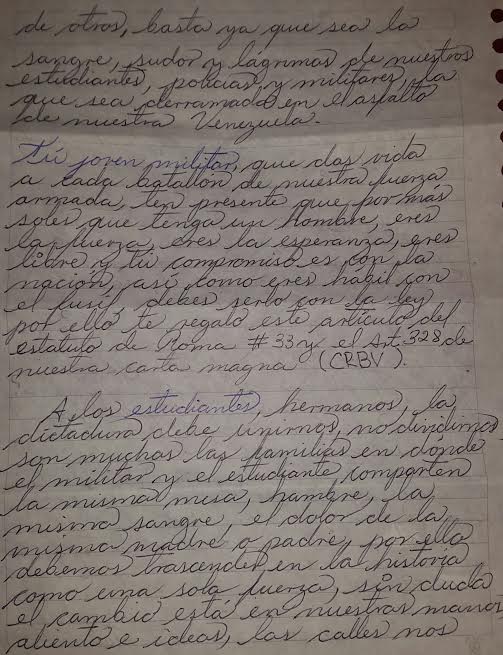 de otros, basta ya que sea la
sangre, sudor y lágrimas de nuestros
estudiantes, policías y militares, la
que sea derramada en el asfalto
de nuestra Venezuela.
Tú joven militar, que das vida
a cada batallón de nuestra fuerza
armada, ten presente que por más
soles que tenga un hombre, eres
la fuerza, eres la esperanza, eres
libre y tú compromiso es con la
nación, así como eres hábil con
el fusíl, debes serlo con la ley
por ello te regalo este artículo del
estatuto de Roma #33 y el Art. 328 de
nuestra carta magna (CRBV).
A los estudiantes, hermanos, la
dictadura debe unirnos, no dividirnos
son muchas las familias en dónde
el militar y el estudiante comparten
la misma mesa, hambre, la
misma sangre, el dolor de la
misma madre o padre, por ello
debemos trascender en la historia
como una sola fuerza, sin duda
el cambio está en nuestras manos,
aliento e ideas, las calles nos